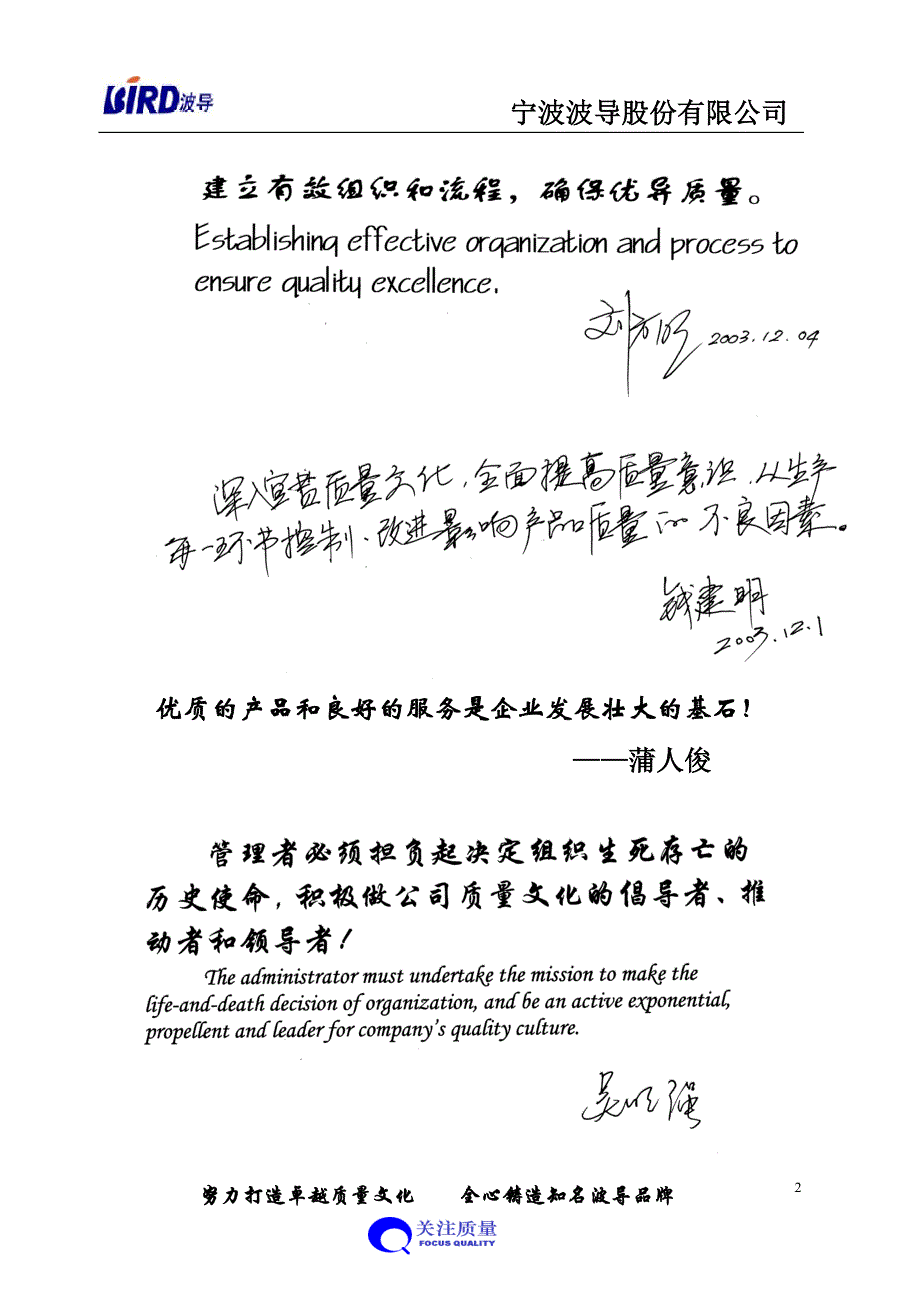 BIRD波导
宁波波导股份有限公司
建立有效组织和流程，确保优异质量。
Establishing effective organization and process to
ensure quality excellence.
2003.12.04
深入宣贯质量文化，全面提高质量意识，从生产
每一环节控制、改进影响产品质量的不良因素。
钱建明
2003.12.1
优质的产品和良好的服务是企业发展壮大的基石！
——蒲人俊
管理者必须担负起决定组织生死存亡的
历史使命，积极做公司质量文化的倡导者、推
动者和领导者！
The administrator must undertake the mission to make the
life-and-death decision of organization, and be an active exponential,
propellent and leader for company's quality culture.
努力打造卓越质量文化 全心铸造知名波导品牌
2
关注质量
FOCUS QUALITY